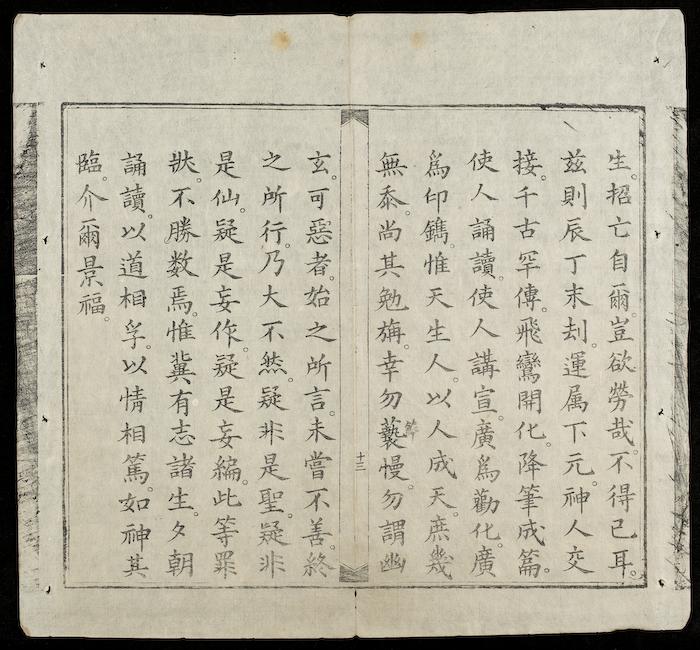 生。招亡自爾。豈欲勞哉。不得已耳。
兹則辰丁末刦。運属下元。神人交
接。千古罕傳。飛鸞開化。降筆成篇。
使人誦讀。使人講宣。廣爲勸化。廣
爲印鐫。惟天生人。以人成天。庶幾
無忝。尚其勉旃。幸勿褻慢。勿謂幽
十三
玄。可惡者。始之所言。未嘗不善。終
之所行。乃大不然。疑非是聖。疑非
是仙。疑是妄作。疑是妄編。此等罪
狀。不勝数焉。惟兾有志諸生。夕朝
誦讀。以道相孚。以情相篤。如神其
臨。介爾景福。